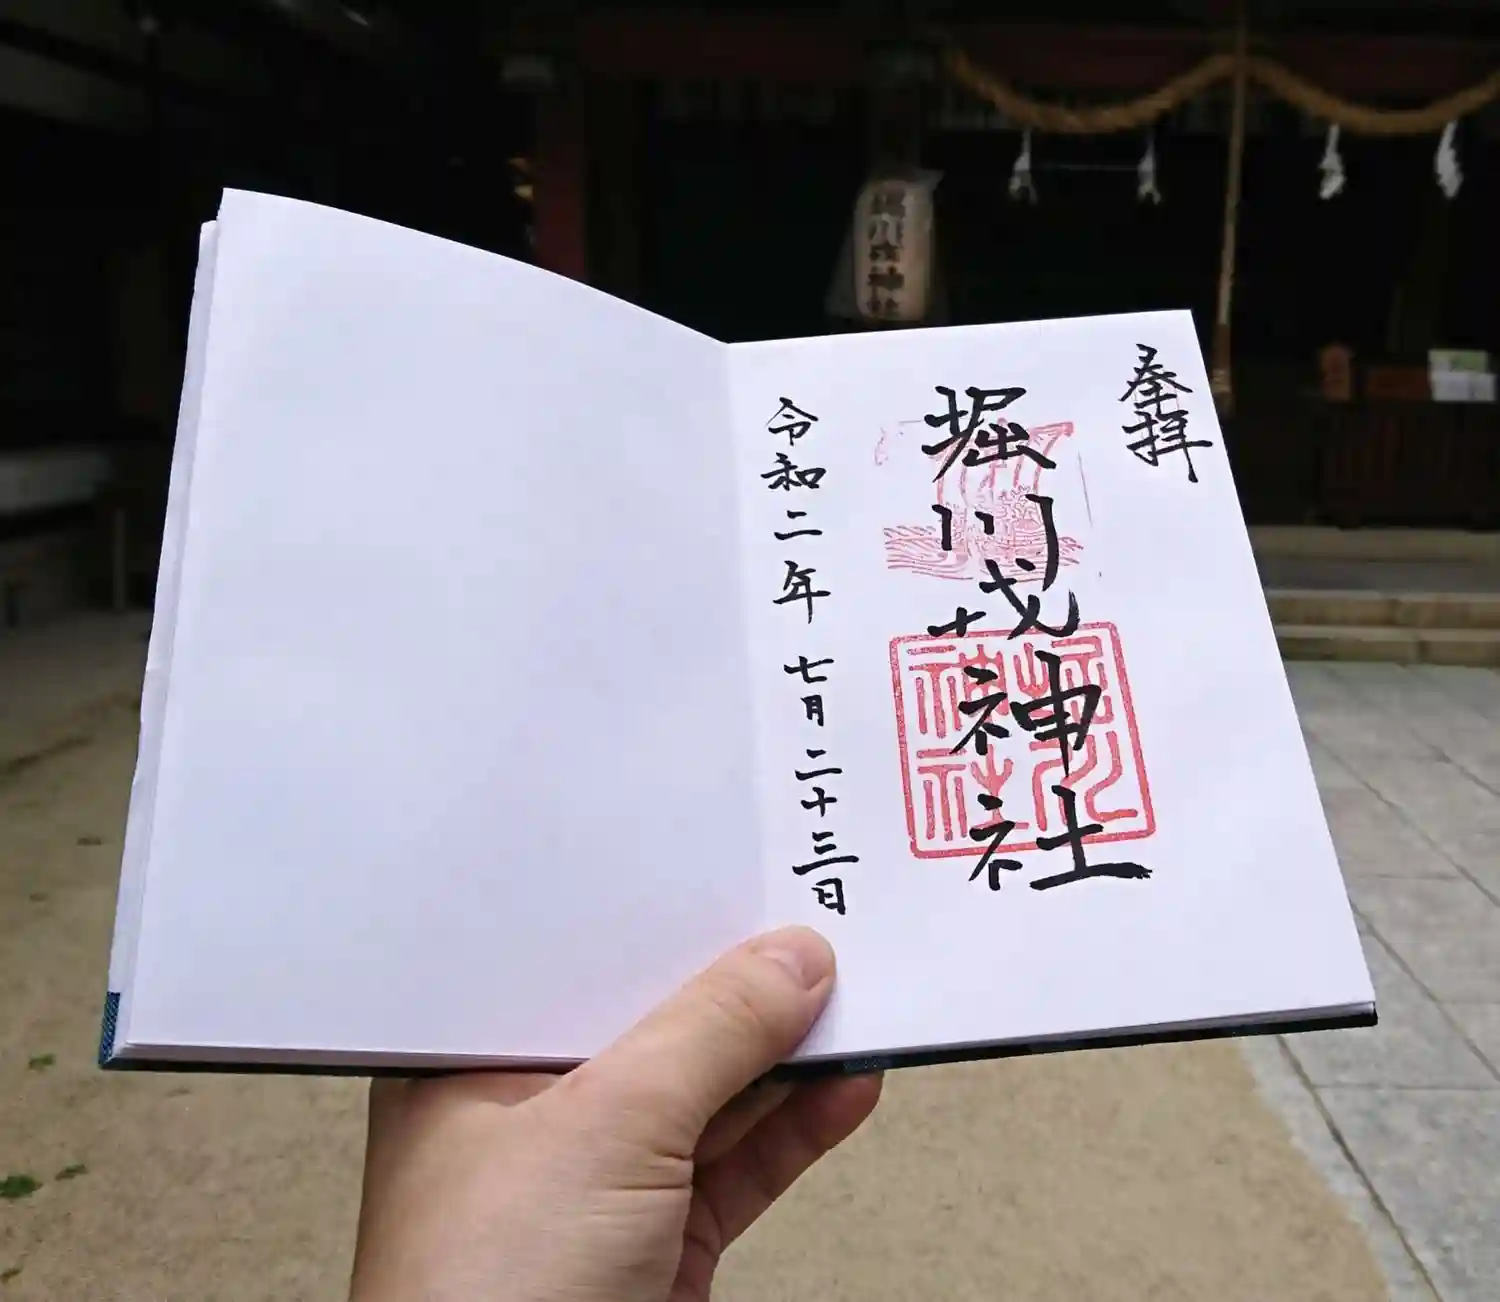 奉拝
堀川戎神社
堀川神社
令和二年七月二十三日
堀川戎神社